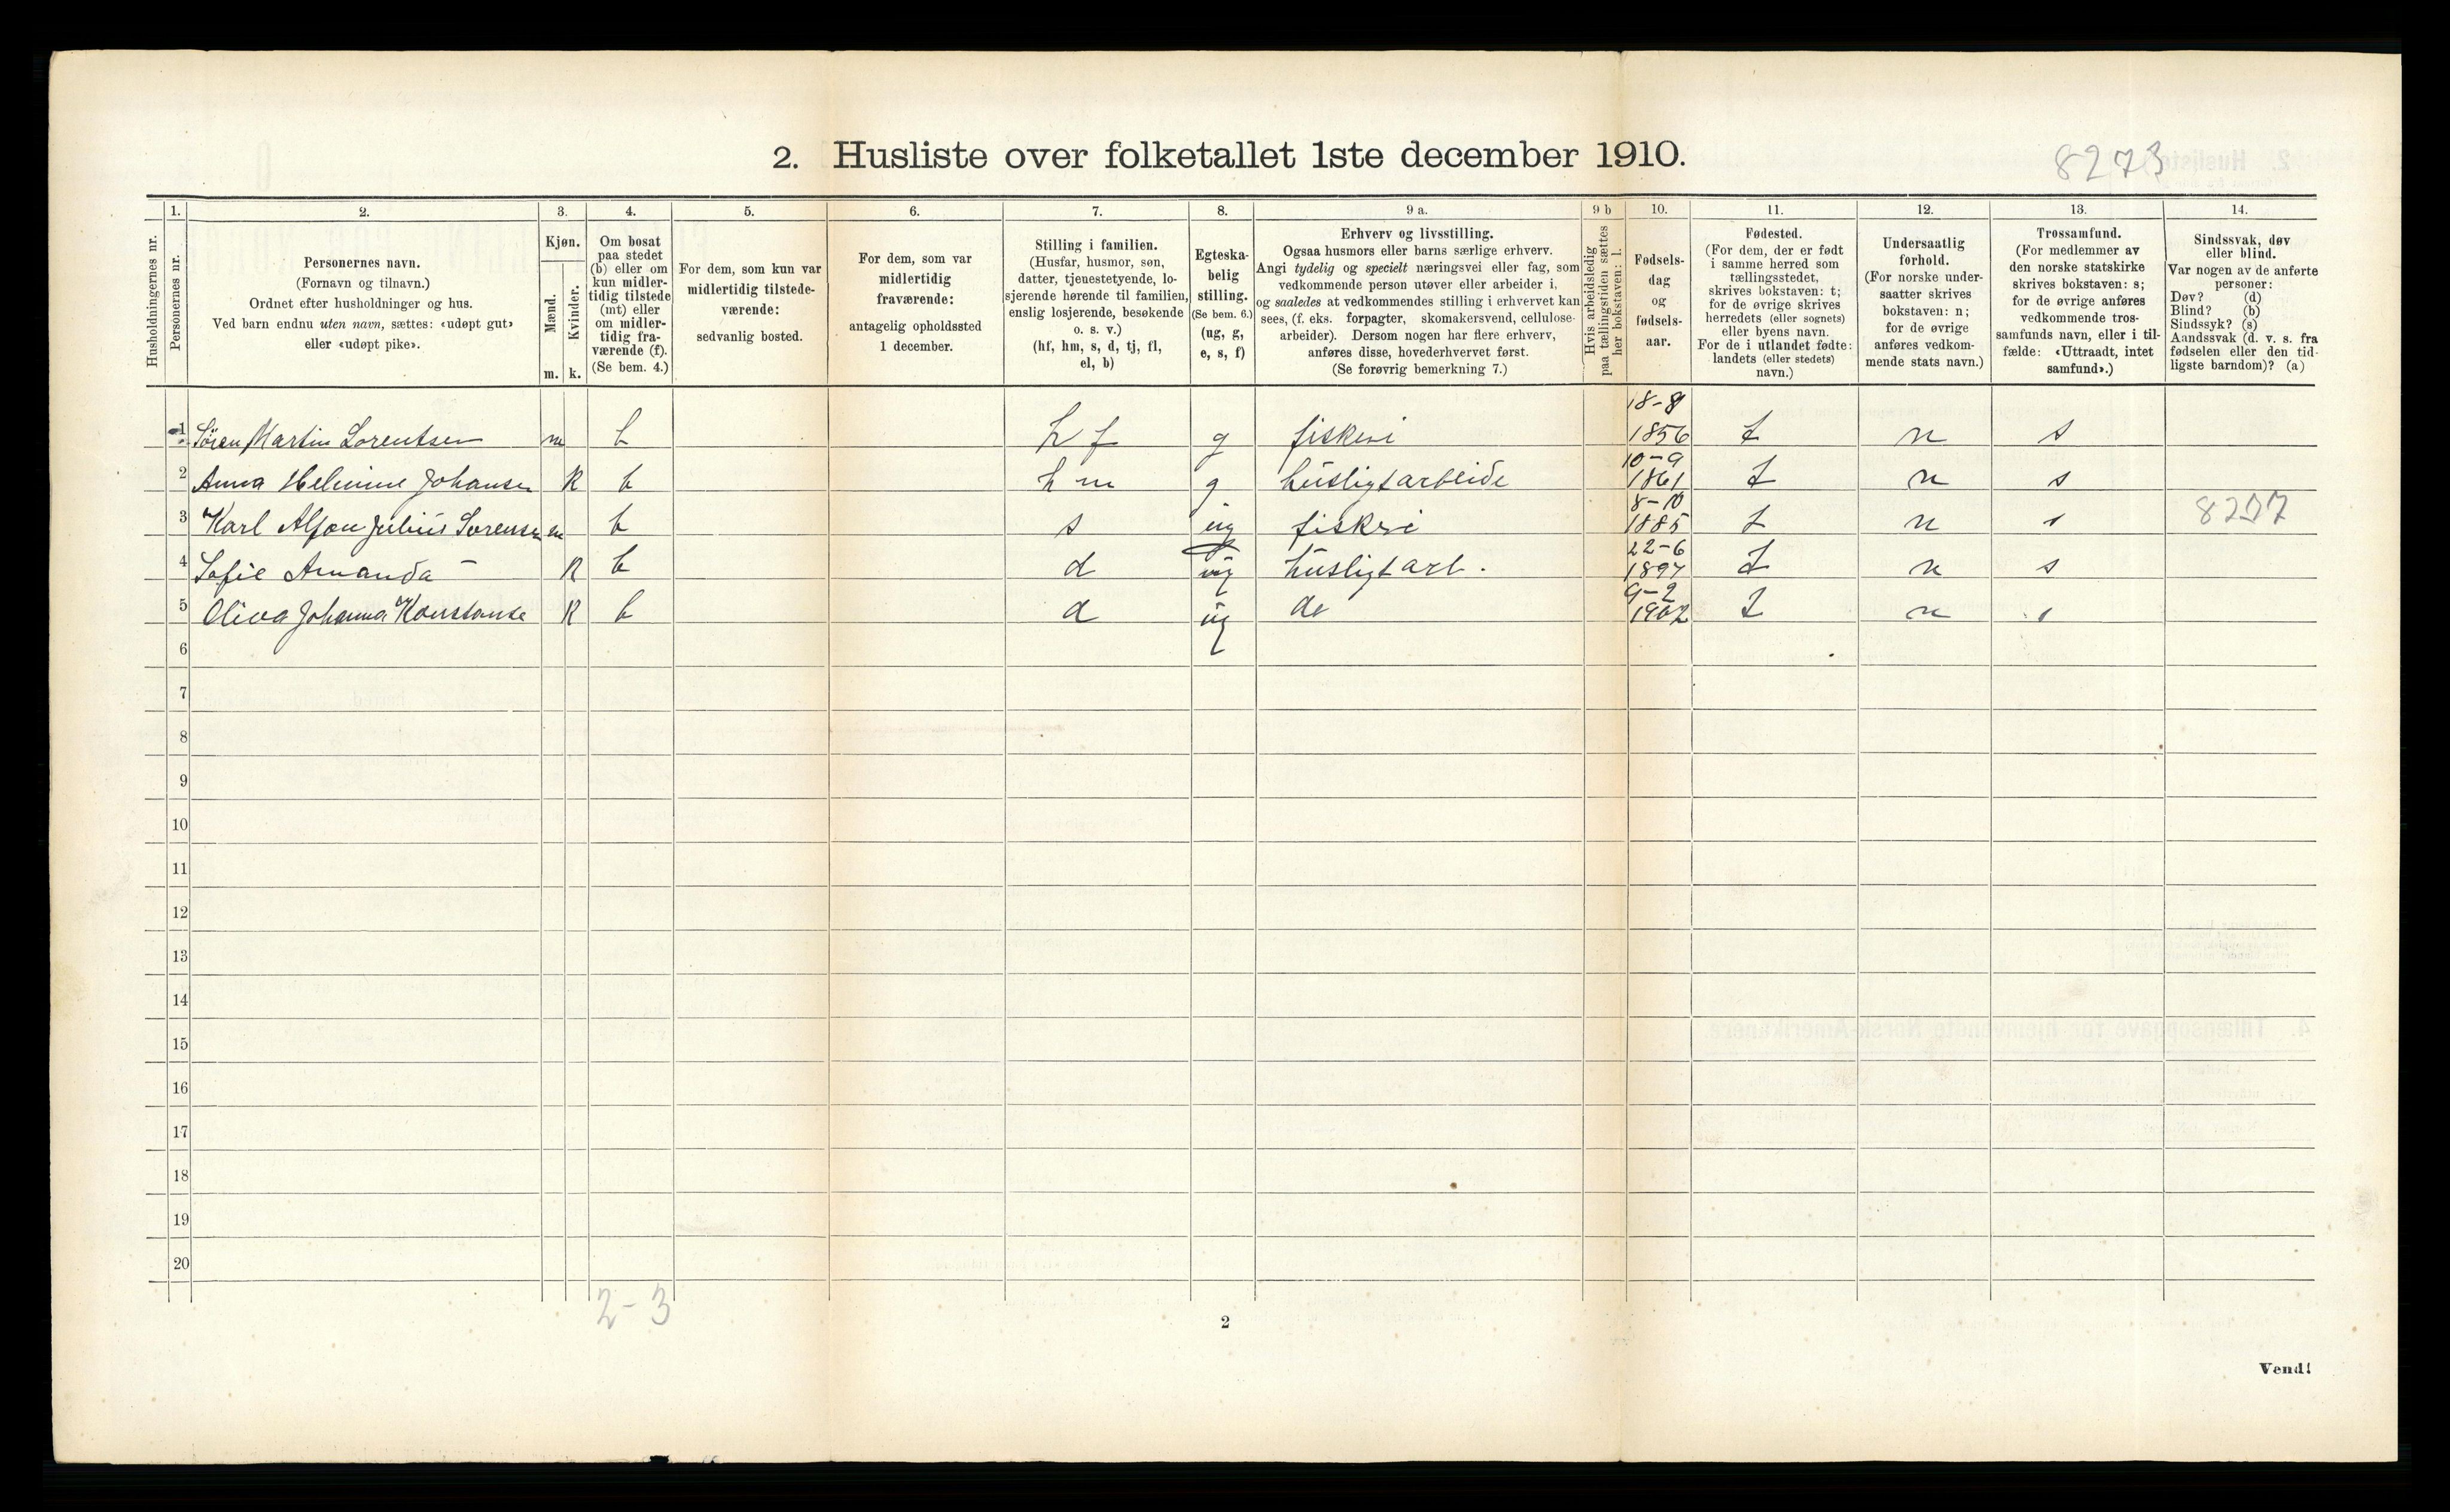 2. Husliste over folketallet 1ste december 1910.
8273
Husholdningernes nr.
1.
Personernes nr.
2.
Personernes navn.
(Fornavn og tilnavn.)
Ordnet efter husholdninger og hus.
Ved barn endnu uten navn, sættes: «udøpt gut»
eller «udøpt pike».
3.
Kjøn.
Mænd.
Kvinder.
m.
k.
4.
Om bosat
paa stedet
(b) eller om
kun midler-
tidig tilstede
(mt) eller
om midler-
tidig fra-
værende (f).
(Se bem. 4.)
5.
For dem, som kun var
midlertidig tilstede-
værende:
sedvanlig bosted.
6.
For dem, som var
midlertidig
fraværende:
antagelig opholdssted
1 december.
7.
Stilling i familien.
(Husfar, husmor, søn,
datter, tjenestetyende, lo-
sjerende hørende til familien,
enslig losjerende, besøkende
o. s. v.)
(hf, hm, s, d, tj, fl,
el, b)
8.
Egteska-
belig
stilling.
(Se bem. 6.)
(ug, g,
e, s, f)
9 a.
Erhverv og livsstilling.
Ogsaa husmors eller barns særlige erhverv.
Angi tydelig og specielt næringsvei eller fag, som
vedkommende person utøver eller arbeider i,
og saaledes at vedkommendes stilling i erhvervet kan
sees, (f. eks. forpagter, skomakersvend, cellulose-
arbeider). Dersom nogen har flere erhverv,
anføres disse, hovederhvervet først.
(Se forøvrig bemerkning 7.)
9 b
Hvis arbeidsledig
paa tællingstiden sættes
her bokstaven: l.
10.
Fødsels-
dag
og
fødsels-
aar.
11.
Fødested.
(For dem, der er født
i samme herred som
tællingsstedet,
skrives bokstaven: t;
for de øvrige skrives
herredets (eller sognets)
eller byens navn.
For de i utlandet fødte:
landets (eller stedets)
navn.)
12.
Undersaatlig
forhold.
(For norske under-
saatter skrives
bokstaven: n;
for de øvrige
anføres vedkom-
mende stats navn.)
13.
Trossamfund.
(For medlemmer av
den norske statskirke
skrives bokstaven: s;
for de øvrige anføres
vedkommende tros-
samfunds navn, eller i til-
fælde: «Uttraadt, intet
samfund».)
14.
Sindssvak, døv
eller blind.
Var nogen av de anførte
personer:
Døv? (d)
Blind? (b)
Sindssyk? (s)
Aandssvak (d. v. s. fra
fødselen eller den tid-
ligste barndom)? (a)
1 Sören Martin Lorentsen m b hf g fiskeri 18-8 1856 t n s
2 Anna Helmine Johansen k b hm g husligt arbeide 10-9 1861 t n s
3 Karl Alfon Julius Sorensen m b s ug fiskeri 8-10 1885 t n s
4 Sofie Amanda — k b d ug husligt arb. 22-6 1897 t n s
5 Oliva Johanna Konstanse k b d ug do 9-2 1902 t n s
6
7
8
9
10
11
12
13
14
15
16
17
18
19
20
2-3
2
Vend!